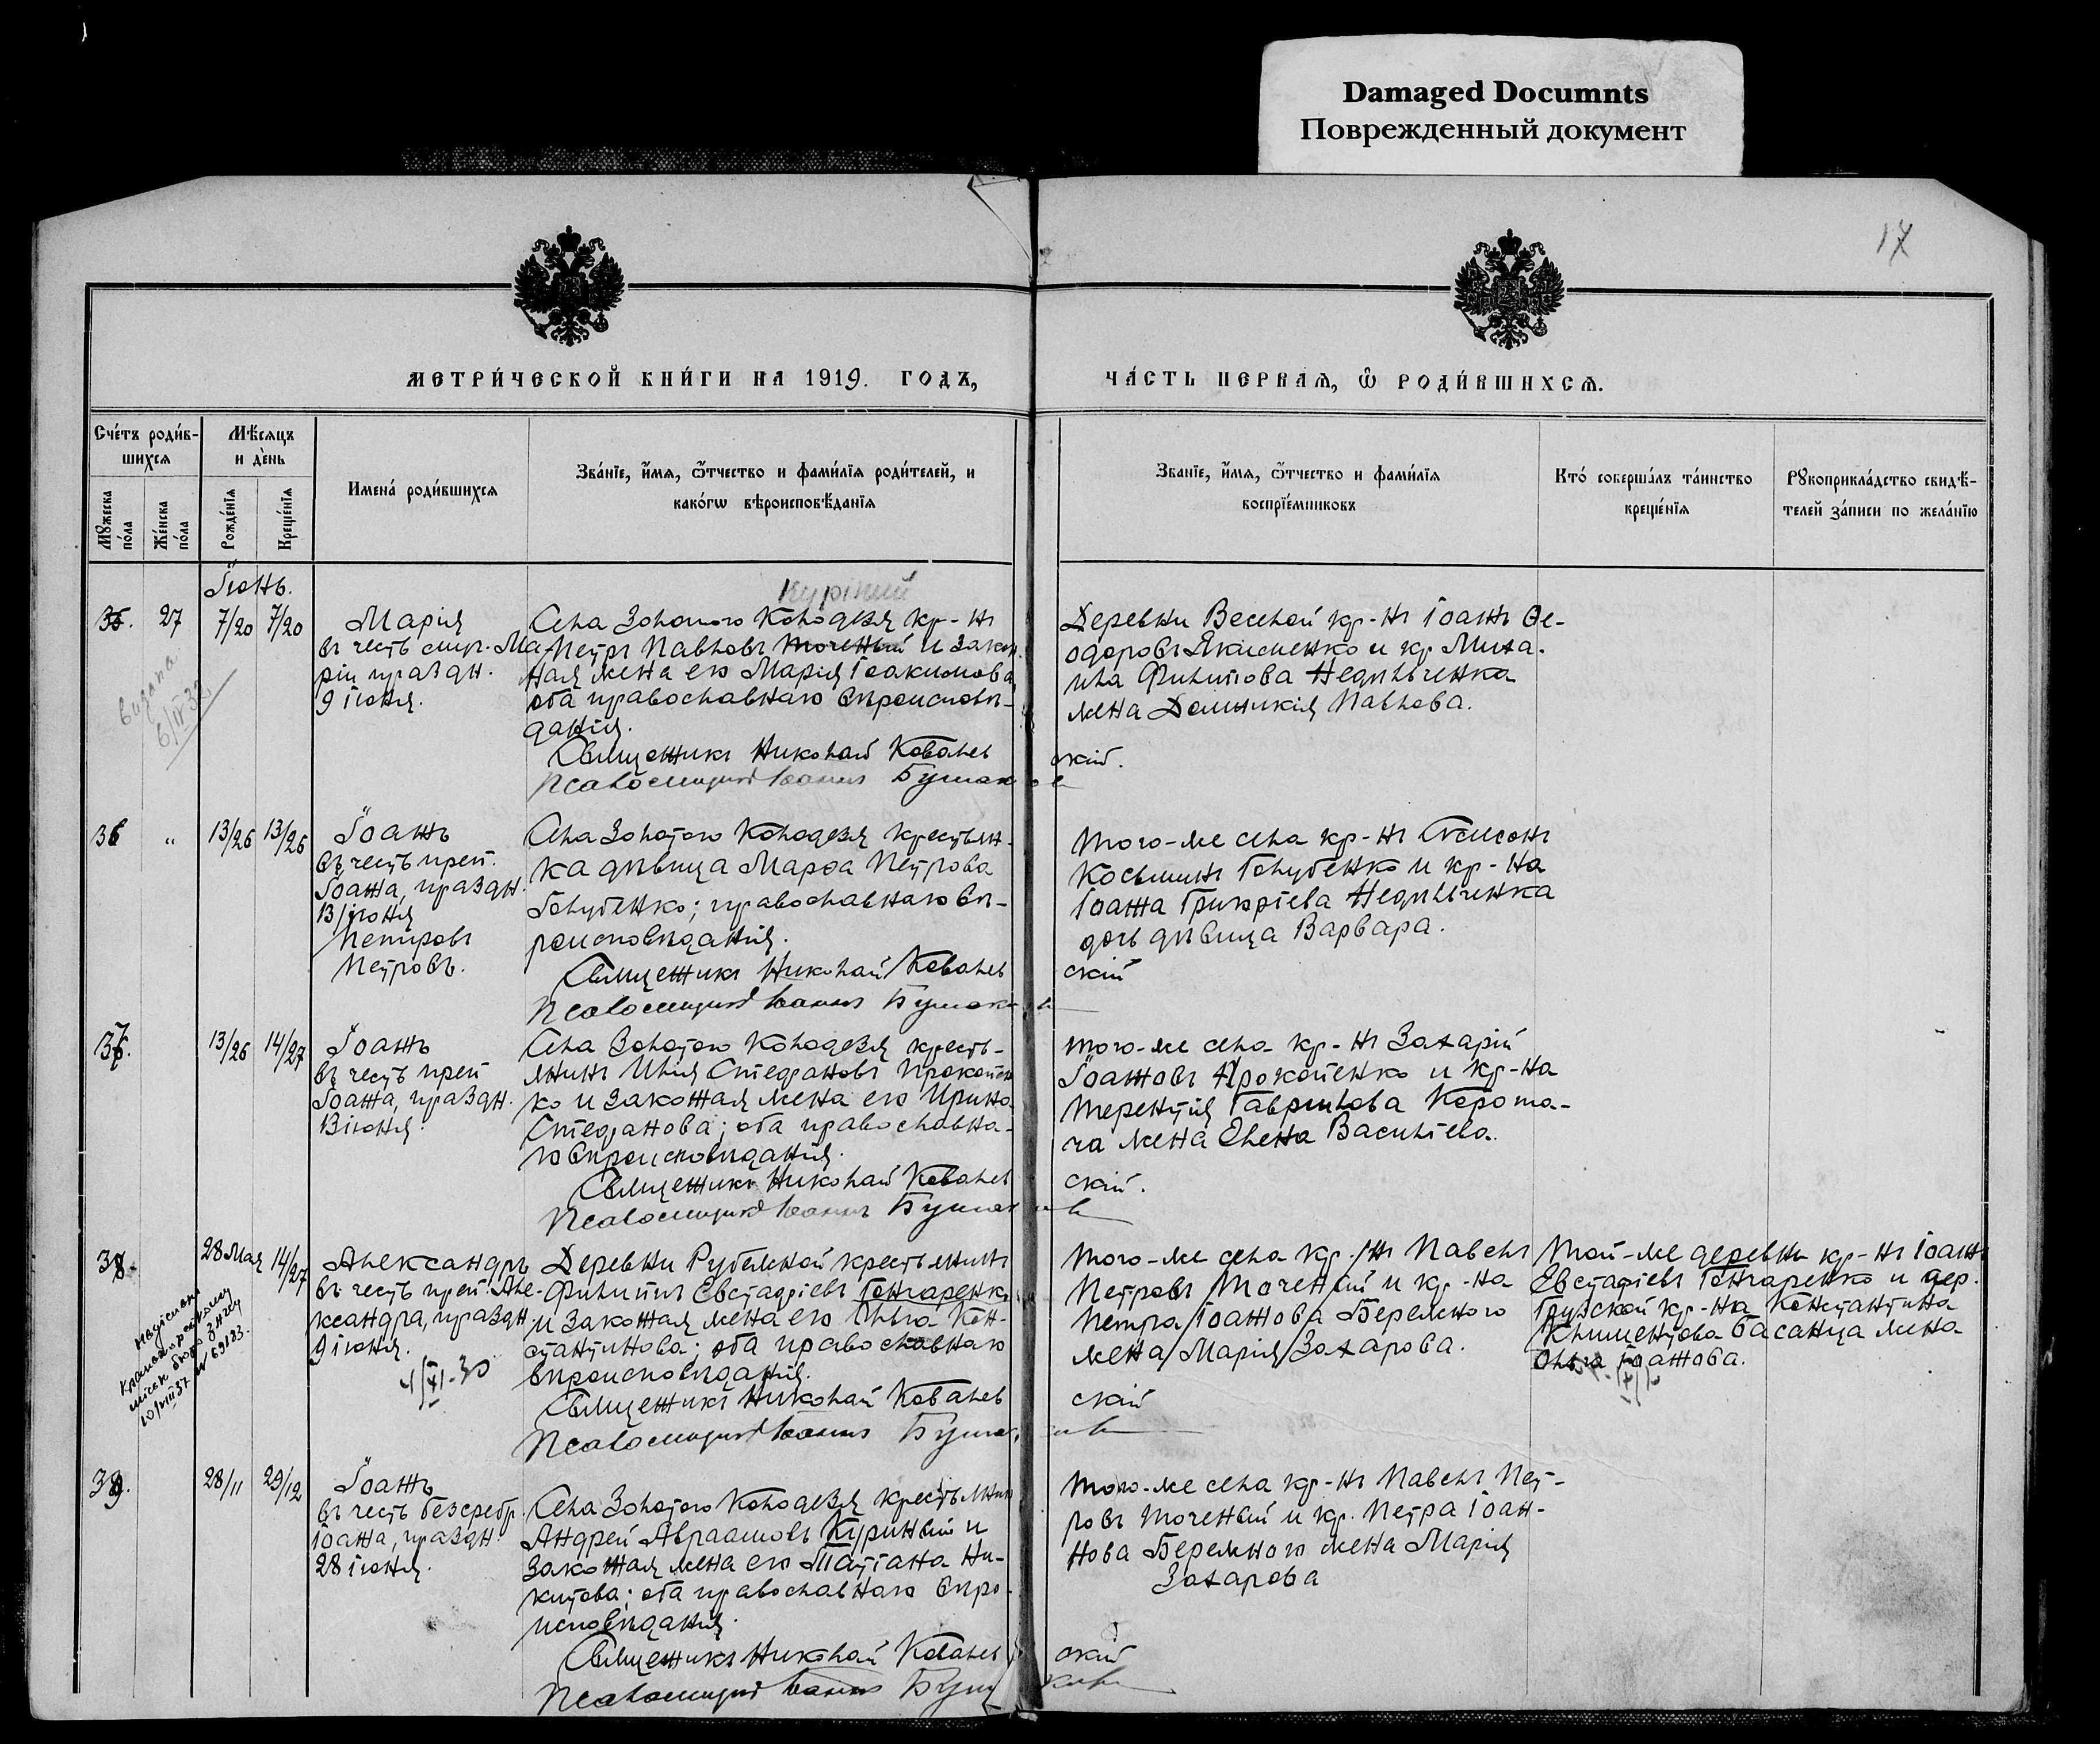 Damaged Documnts
Поврежденный документ
17
МЕТРИ́ЧЕСКОЙ КНИ́ГИ НА 1919. ГОДЪ,
ЧА́СТЬ ПЕРВАѦ, Ѿ РОДИ́ВШИХСѦ.
Сче́тъ роди́в-
шихсѧ
Мꙋжеска
по́ла
Же́нска
по́ла
Мѣ́сѧцъ
и де́нь
Рожде́нїѧ
Креще́нїѧ
Имена́ роди́вшихсѧ
Зва́нїе, и҆́мѧ, ѻ҆́тчество и фами́лїѧ роди́телей, и
како́гѡ вѣроисповѣ́данїѧ
Зва́нїе, и҆́мѧ, ѻ҆́тчество и фами́лїѧ
воспрїе́мниковъ
Кто́ соверша́лъ та́инство
креще́нїѧ
Рꙋкоприкла́дство свидѣ́-
телей за́писи по жела́нїю
Іюнь.
27
7/20 7/20
Марія
въ честь мир. Ма-
ріи праздн.
9 іюня.
видана
Села Золотого Колодезя кр-нъ
Петръ Павловъ Точеный и закон-
ная жена его Марія Іоакимова,
оба православнаго вѣроисповѣ-
данія.
Священникъ Николай Ковалев
скій.
Псаломщикъ Іоаннъ
Деревни Веселой кр-нъ Іоаннъ Ѳе-
одоровъ Якименко и кр. Миха-
ила Филипова Недѣльченка
жена Домникія Павлова.
36 " 13/26 13/26
Іоаннъ
въ честь преп.
Іоанна, праздн.
13 іюня
Петровъ.
Села Золотого Колодезя крестьян-
ка дѣвица Марѳа Петрова
Голубенко; православнаго вѣ-
роисповѣданія.
Священникъ Николай Ковалев
скій
Псаломщикъ Іоаннъ
того-же села кр-нъ
Косьминъ Голубенко и кр-на
Іоанна Григоріева Недѣльченка
дочь дѣвица Варвара.
37. 13/26 14/27
Іоаннъ
въ честь преп
Іоанна, праздн.
13 іюня.
Села Золотого Колодезя кресть-
янинъ Илія Стефановъ Прокопен
ко и законная жена его Ирина
Стефанова; оба православна-
го вѣроисповѣданія.
Священникъ Николай Ковалев
скій.
Псаломщикъ Іоаннъ
того-же села кр-нъ Захарій
Іоанновъ Прокопенко и кр-на
Терентія Гавриилова Корота-
ча жена Елена Василіева.
38. 28 Мая 14/27
Александръ
въ честь преп. Але-
ксандра, праздн
9 іюня.
4/XI-30
Деревни Рубежной крестьянинъ
Филипъ Евстафіевъ Гончаренко
и законная жена его Ольга Кон-
стантинова; оба православнаго
вѣроисповѣданія.
Священникъ Николай Ковалев
скій
Псаломщикъ Іоаннъ
того-же села кр-нъ Павелъ
Петровъ Точеный и кр-на
Петра Іоаннова Бережного
жена Марія Захарова.
Той-же деревни кр-нъ Іоаннъ
Евстафіевъ Гончаренко и дер.
Грузской кр-на Константина
Климентова Басанца жена
Ольга Іоаннова.
39. 28/11 29/12
Іоаннъ
въ честь безсребр.
Іоанна, праздн.
28 іюня.
Села Золотого Колодезя крестьянин
Андрей Авраамовъ Куриный и
законная жена его Татіана Ни-
китова; оба православнаго вѣро-
исповѣданія.
Священникъ Николай Ковалев
скій
Псаломщикъ Іоаннъ
того-же села кр-нъ Павелъ Пет-
ровъ Точеный и кр. Петра Іоан-
нова Бережного жена Марія
Захарова